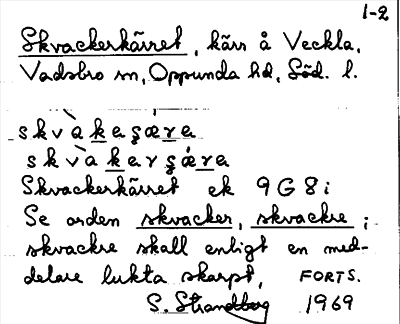 1-2
Skvackerkärret, kärr å Veckla,
Vadsbro sn, Oppunda hd, Söd. l.
skvàkaşǽra
skvàkarşǽra
Skvackerkärret ek 9G8i
Se orden skvacker, skvackre;
skvackre skall enligt en med-
delare lukta skarpt, FORTS.
S. Strandberg 1969